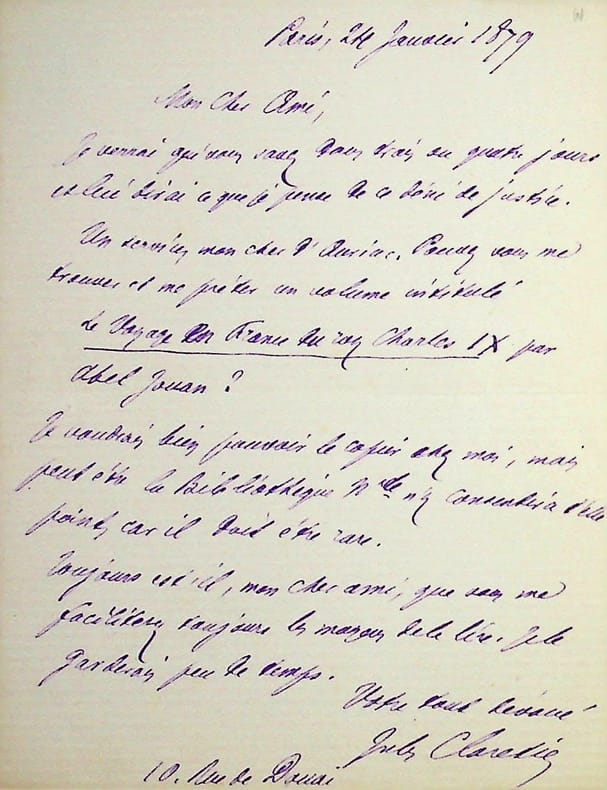 Paris, 24 Janvier 1879
Mon cher Ami,
Je verrai qui vous savez dans trois ou quatre jours
et lui dirai ce que je pense de ce déni de justice.
Un service, mon cher d'Auriac. Pouvez vous me
trouver et me prêter un volume intitulé
Le Voyage en France du roy Charles IX par
Abel Jouan ?
Je voudrais bien pouvoir le copier chez moi, mais
peut être la Bibliothèque Nle n'y consentira t'elle
point, car il doit être rare.
Toujours est-il, mon cher ami, que vous me
faciliterez toujours les moyens de le lire. Je le
garderais peu de temps.
Votre tout dévoué
Jules Claretie
10. Rue de Douai